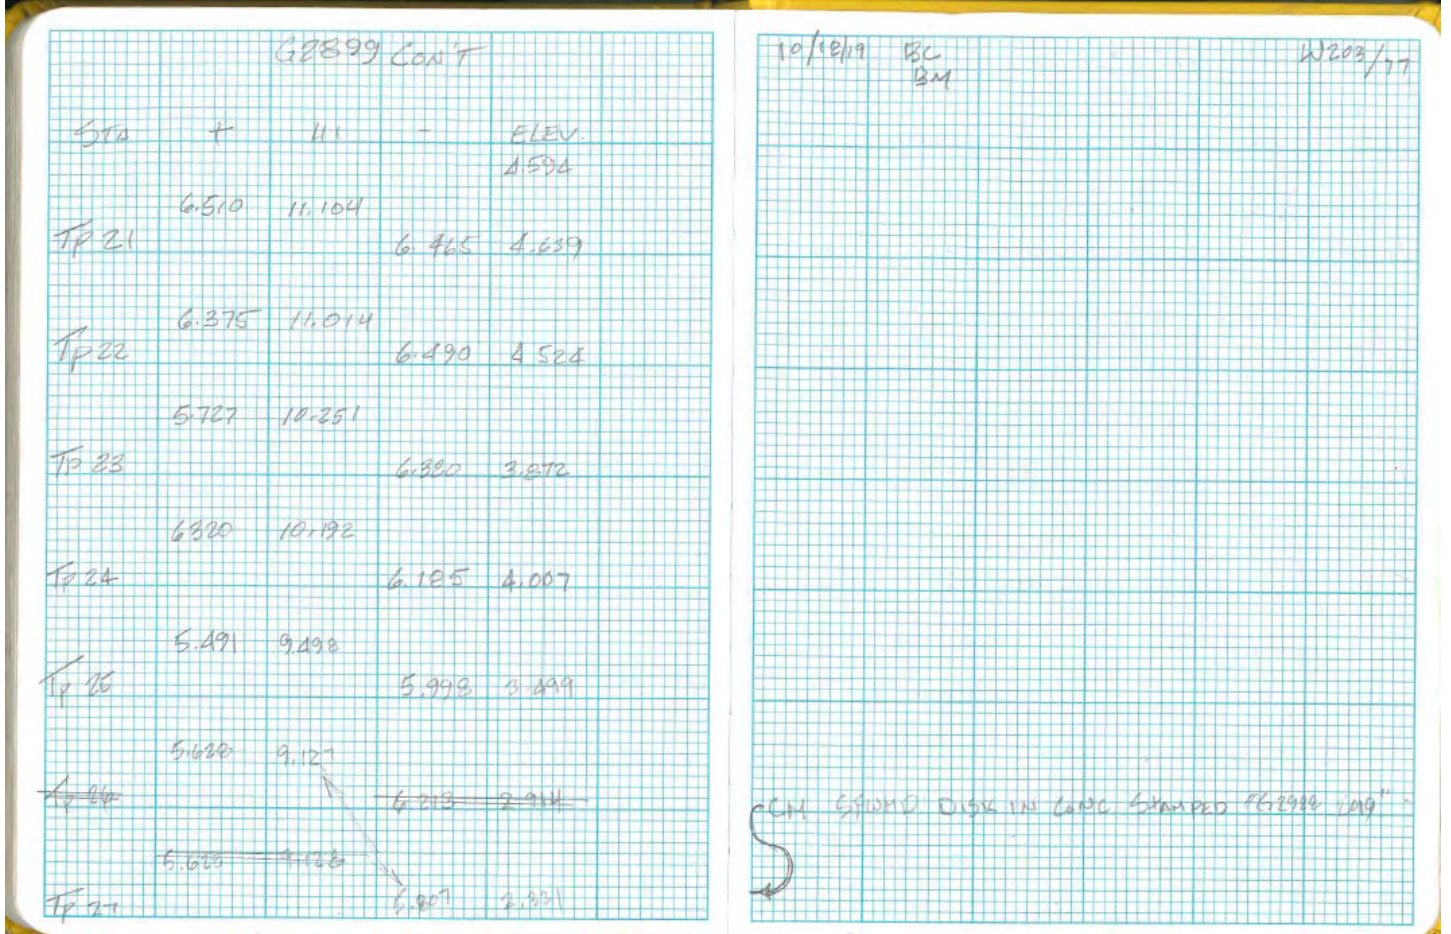 G2899 CON'T
STA + HI - ELEV.
4.594
6.510 11.104
Tp 21 6.465 4.639
6.375 11.014
Tp 22 6.490 4.524
5.727 10.251
Tp 23 6.380 3.872
6320 10.192
Tp 24 6.185 4.007
5.491 9.498
Tp 25 5.998 3.499
5.628 9.127
Tp 26 6.213 2.914
5.628 9.128
Tp 27
10/18/19 BC W203/77
BM
CM DISK IN CONC STAMPED